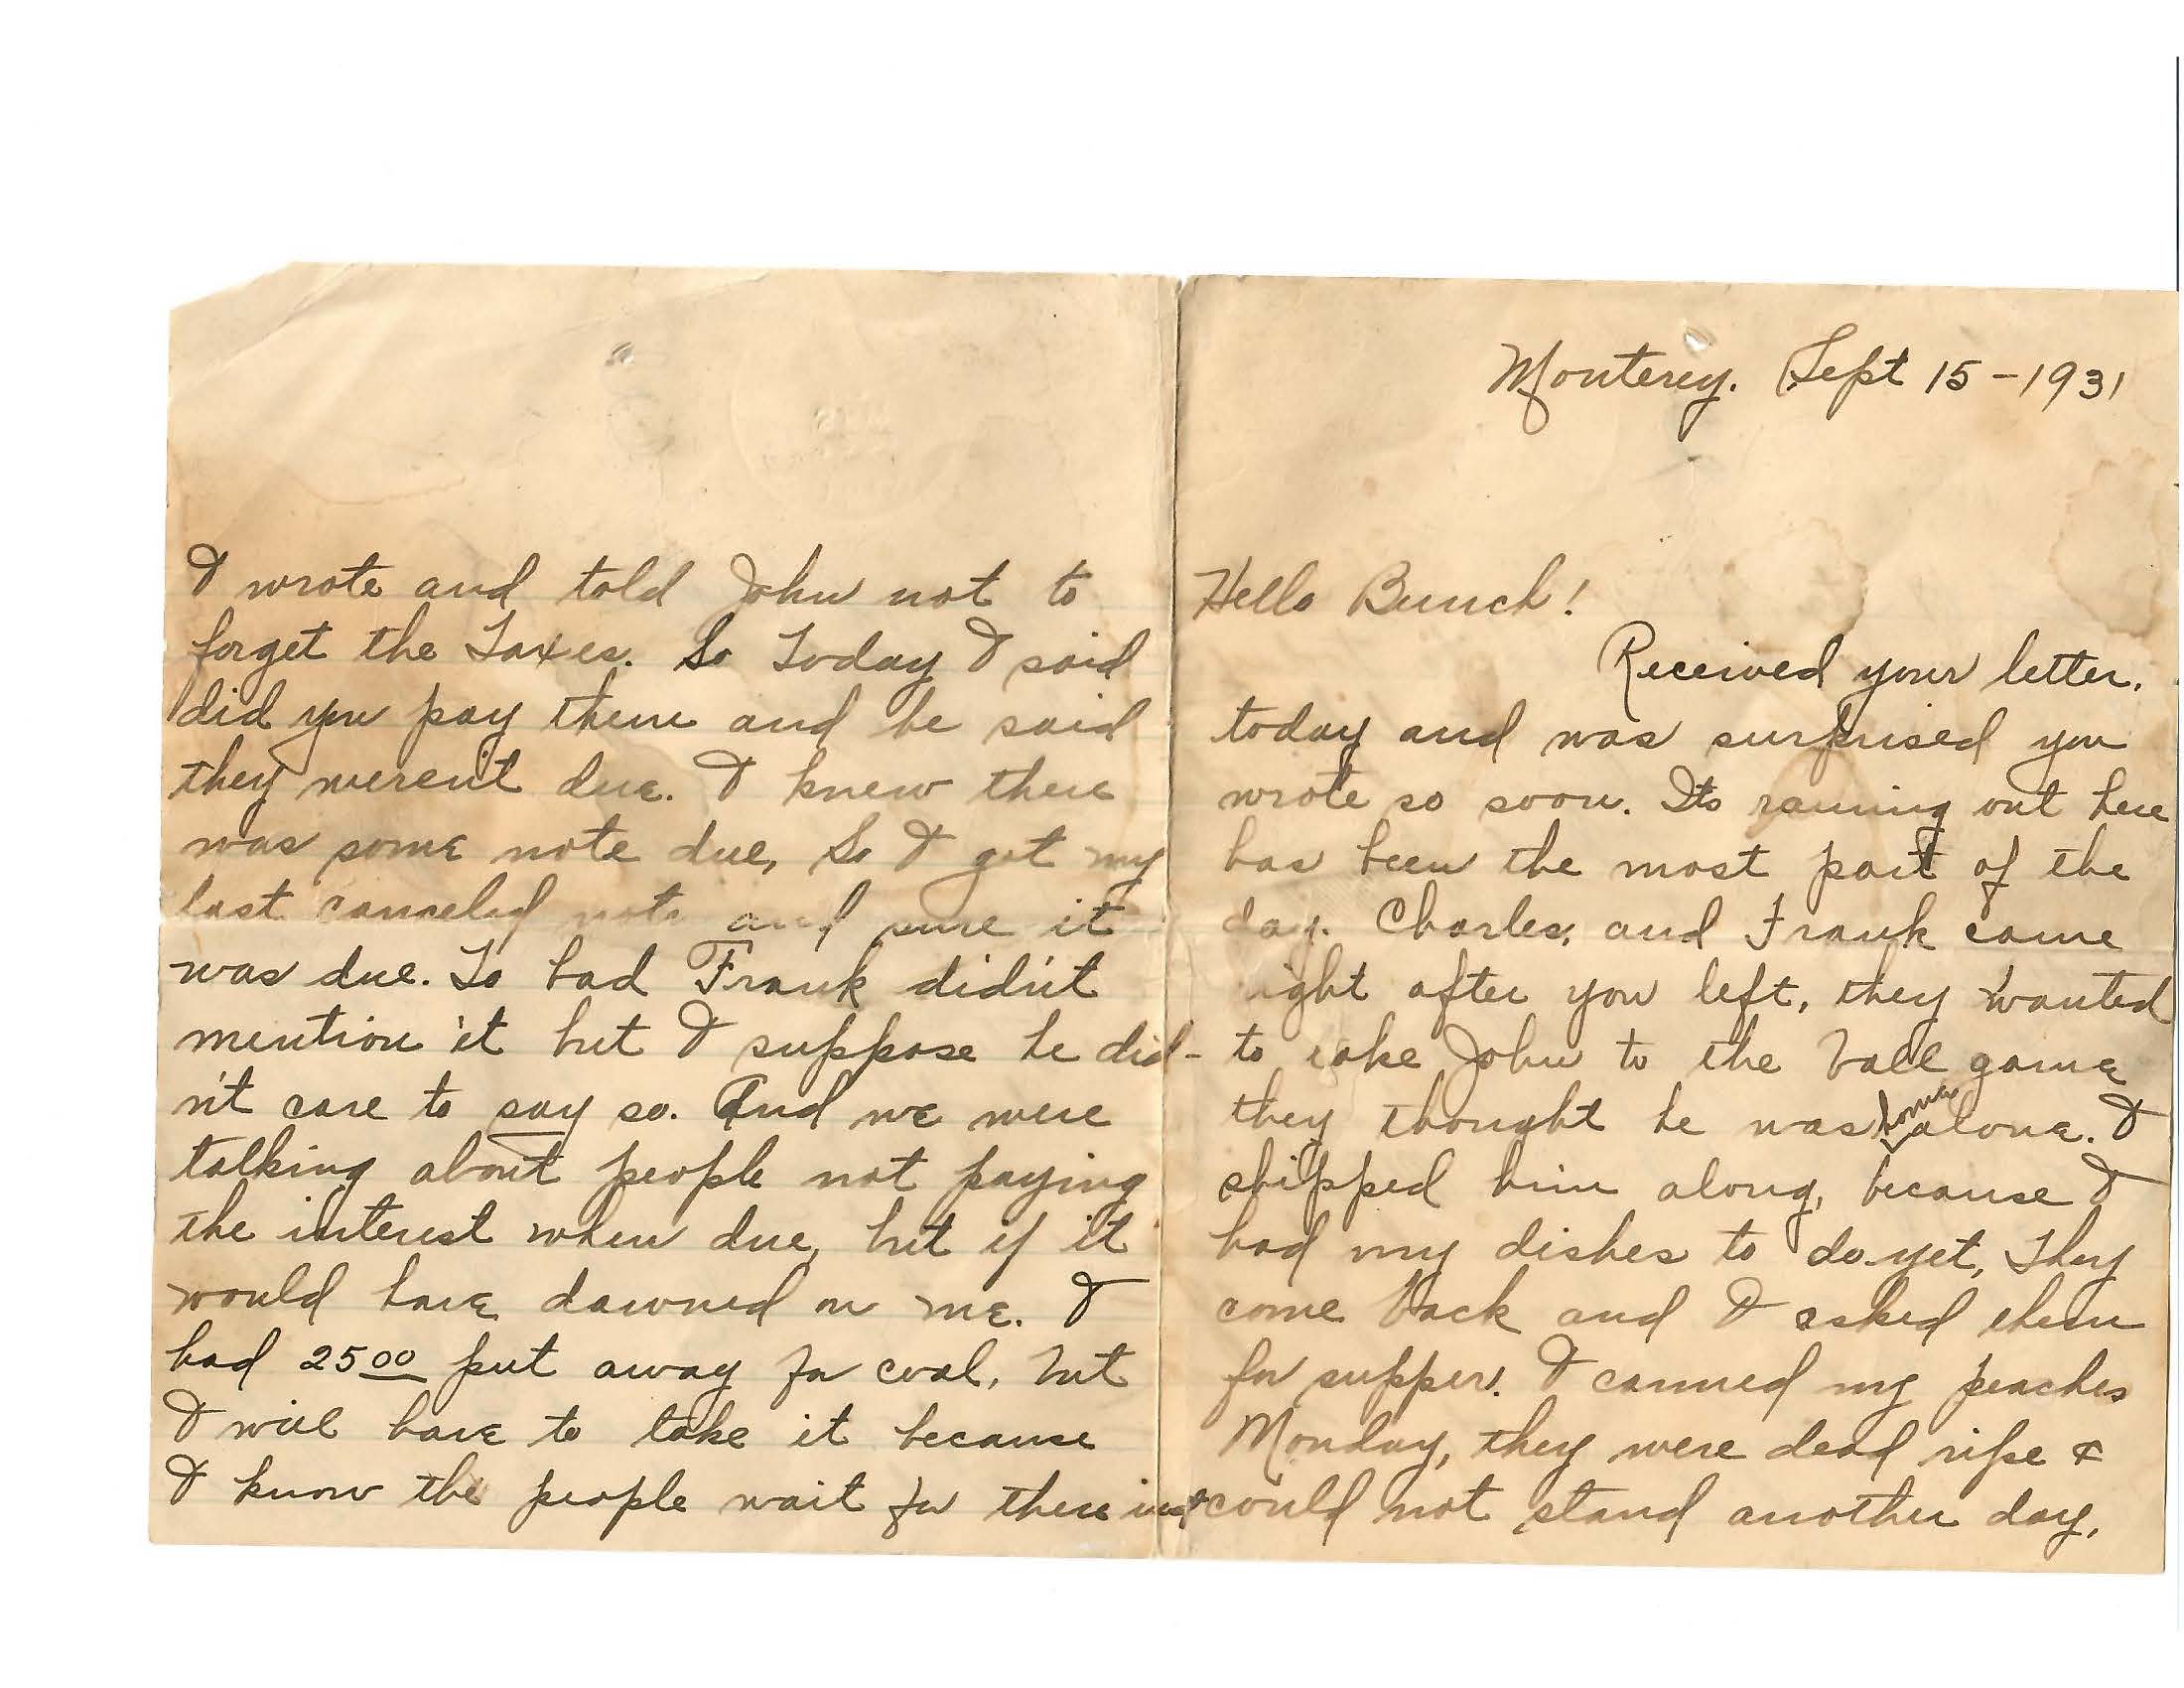 Monterey. Sept 15-1931
Hello Bunch!
Received your letter.
today and was surprised you
wrote so soon. Its raining out here
has been the most part of the
day. Charles, and Frank came
right after you left, they wanted
to take John to the ball game
they thought he was home alone. I
shipped him along, because I
had my dishes to do yet, They
come back and I asked them
for supper. I canned my peaches
Monday, they were dead ripe &
could not stand another day.
I wrote and told John not to
forget the Taxes. So Today I said
did you pay them and he said
they weren't due. I knew there
was some note due, So I got my
last canceled note and sure it
was due. To bad Frank didn't
mention it but I suppose he did-
n't care to say so. And we were
talking about people not paying
the interest when due, but if it
would have dawned on me. I
had 25 00 put away for coal, but
I will have to take it because
I know the people wait for there